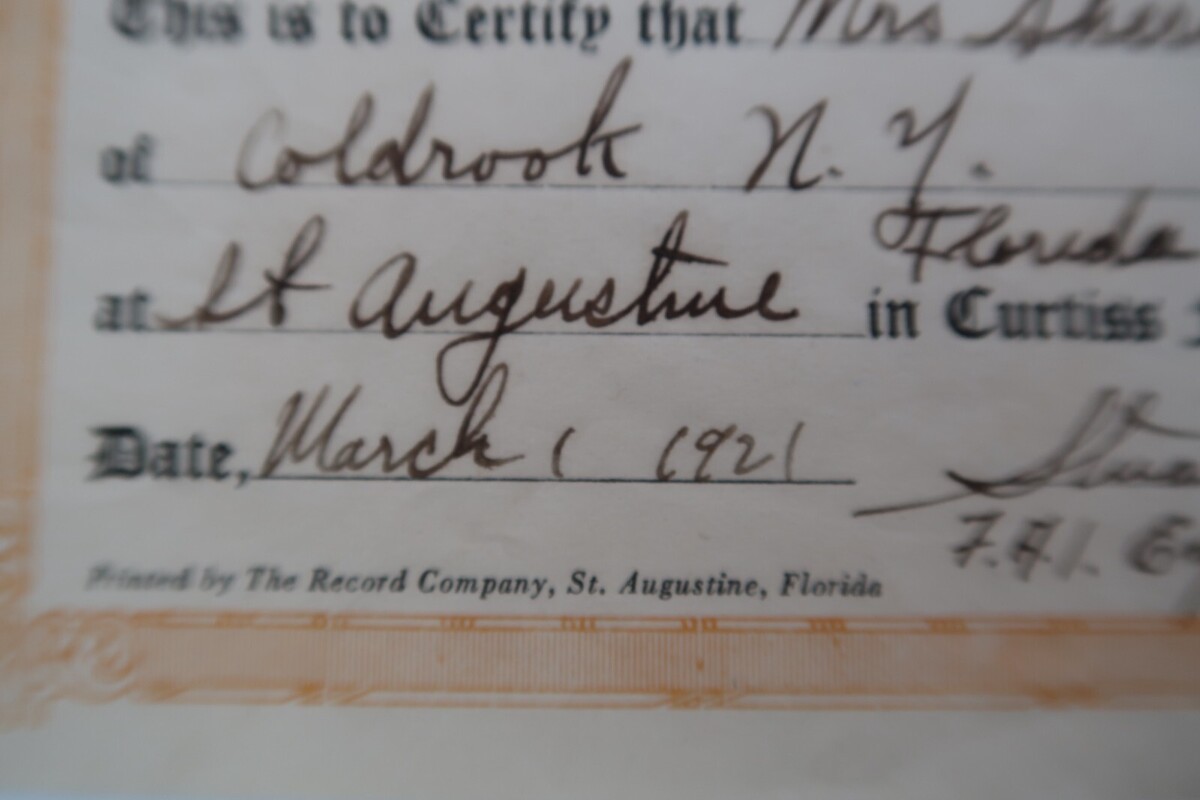 This is to Certify that Mrs
of Coldrook N. Y.
at St Augustine Florida in Curtiss
Date, March 1 1921
F.A.I.
Printed by The Record Company, St. Augustine, Florida